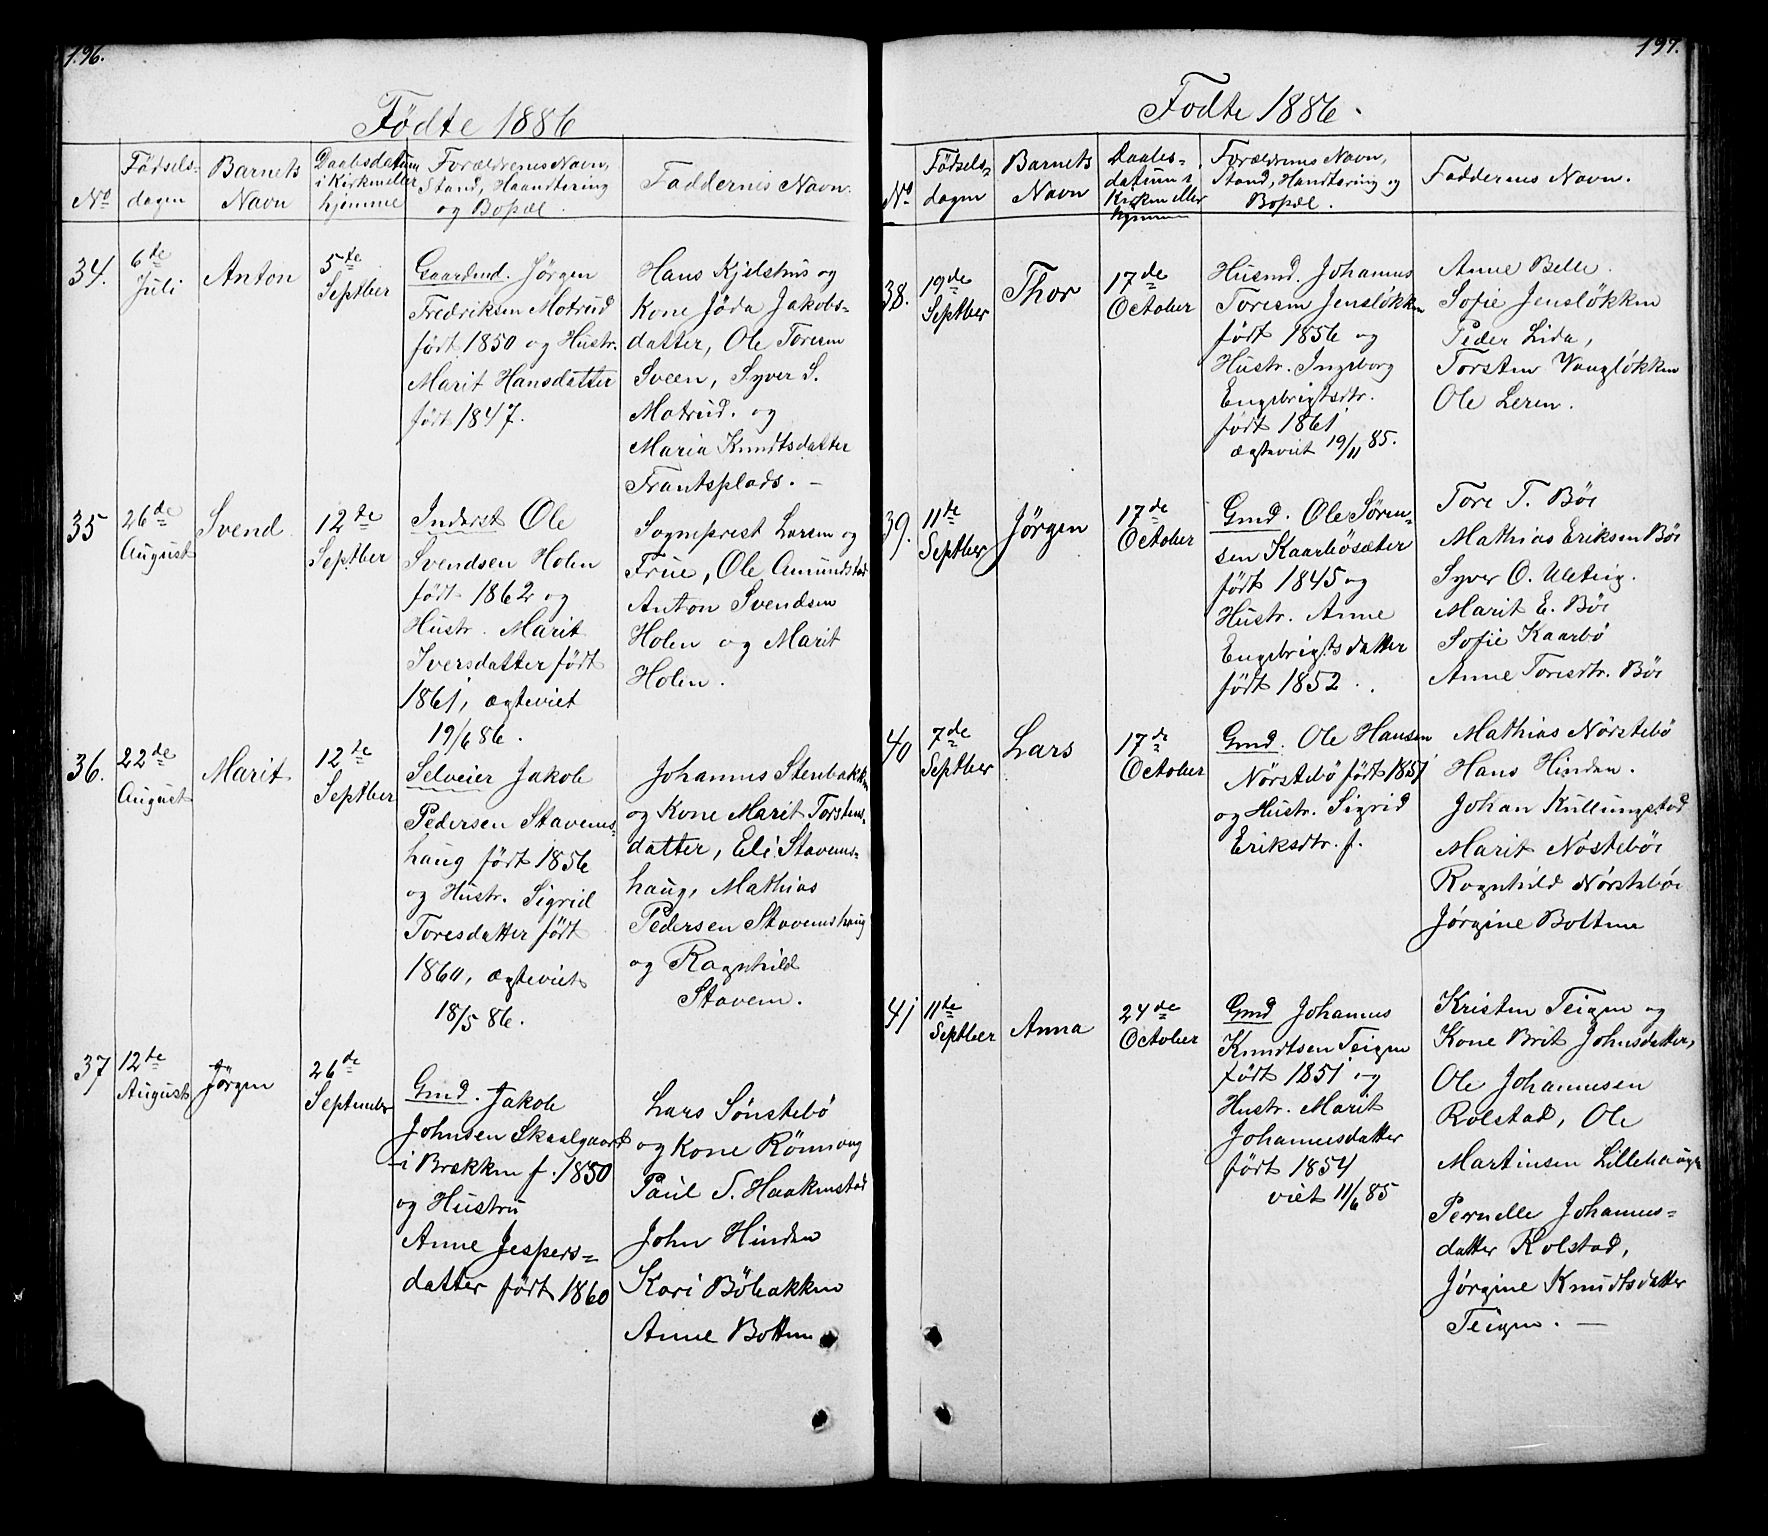 196.
Födte 1886
No
Födsels-
dagen
Barnets
Navn
Daabsdatum
i Kirken eller
hjemme
Forældrenes Navn,
Stand, Haandtering
og Bopæl.
Faddernes Navn.
34.
6te
Juli
Anton
5te
Septber
Gaardmd. Jørgen
Fredriksen Motrud
født 1850 og Hustr.
Marit Hansdatter
født 1847.
Hans Kjelshus og
Kone Jøda Jakobs-
datter, Ole Toresen
Sveen, Syver S.
Motrud. og
Maria Knudtsdatter
Frantsplads. –
35
26de
August
Svend
12te
Septber
Inderst Ole
Svendsen Holen
født 1862 og
Hustr. Marit
Iversdatter født
1861, ægteviet
19/6 86.
Sogneprest Larsen og
Frue, Ole Amundstad
Anton Svendsen
Holen og Marit
Holen.
36.
22de
August
Marit
12te
Septber
Selveier Jakob
Pedersen Stavems-
haug født 1856
og Hustr. Sigrid
Toresdatter født
1860, ægteviet
18/5 86.
Johannes Stenbakken
og Kone Marit Torstens-
datter, Eli Stavems-
haug, Mathias
Pedersen Stavemshaug
og Ragnhild
Stavem.
37
12te
August
Jørgen
26de
September
Gmd. Jakob
Johnsen Skaalgaard
i Brækken f. 1850
og Hustru
Anne Jespers-
datter født 1860
Lars Sønstebö
og Kone Rønnaug
Paul S. Haakenstad
John Hinden
Kari Böbakken
Anne Botten
197.
Födte 1886.
No
Födsels-
dagen
Barnets
Navn
Daabs-
datum i
Kirken eller
hjemme
Forældrenes Navn,
Stand, Handtering og
Bopæl.
Faddernes Navn.
38.
19de
Septber
Thor
17de
October
Husmd. Johannes
Toresen Jensløkken
født 1856 og
Hustr. Ingeborg
Engebrigtsdtr.
født 1861
ægteviet 19/11 85.
Anne Belle.
Sofie Jensløkken
Peder Lida,
Torsten Vangløkken
Ole Leren.
39.
11te
Septber
Jørgen
17de
October
Gmd. Ole Sören-
sen Kaarbösæter
født 1845 og
Hustr. Anne
Engebrigtsdatter
født 1852.
Tore T. Böe
Mathias Eriksen Böe
Syver O. Uleteig.
Marit E. Böe
Sofie Kaarbö
Anne Toresdtr. Böe
40
7de
Septber
Lars
17de
October
Gmd. Ole Hansen
Nörstebö født 1851
og Hustr. Sigrid
Eriksdtr. f.
Mathias Nörstebö
Hans Hinden.
Johan Kullungstad
Marit Nösteböe
Ragnhild Nörsteböe
Jörgine Boltme
41
11te
Septber
Anna
24de
October
Gmd Johannes
Knudtsen Teigen
født 1851 og
Hustr. Marit
Johannesdatter
født 1854
viet 11/6 85
Kristen Teigen og
Kone Brit Johnsdatter,
Ole Johannesen
Rolstad, Ole
Martinsen Lillehaugen
Pernelle Johannes-
datter Rolstad,
Jørgine Knudtsdatter
Teigen. —